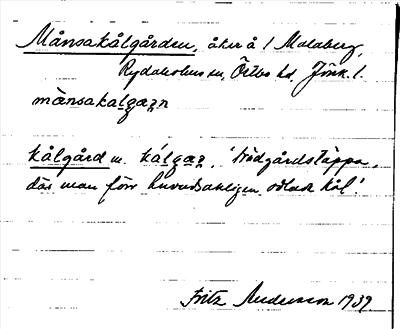 Månsakålgården, åker å 1 Malaberg,
Rydaholms sn, Östbo hd, Jönk. l.
månsakalgazn
kålgård m. kálgaz, 'trädgårdstäppa,
där man förr huvudsakligen odlade kål'.
Fritz Anderson 1939